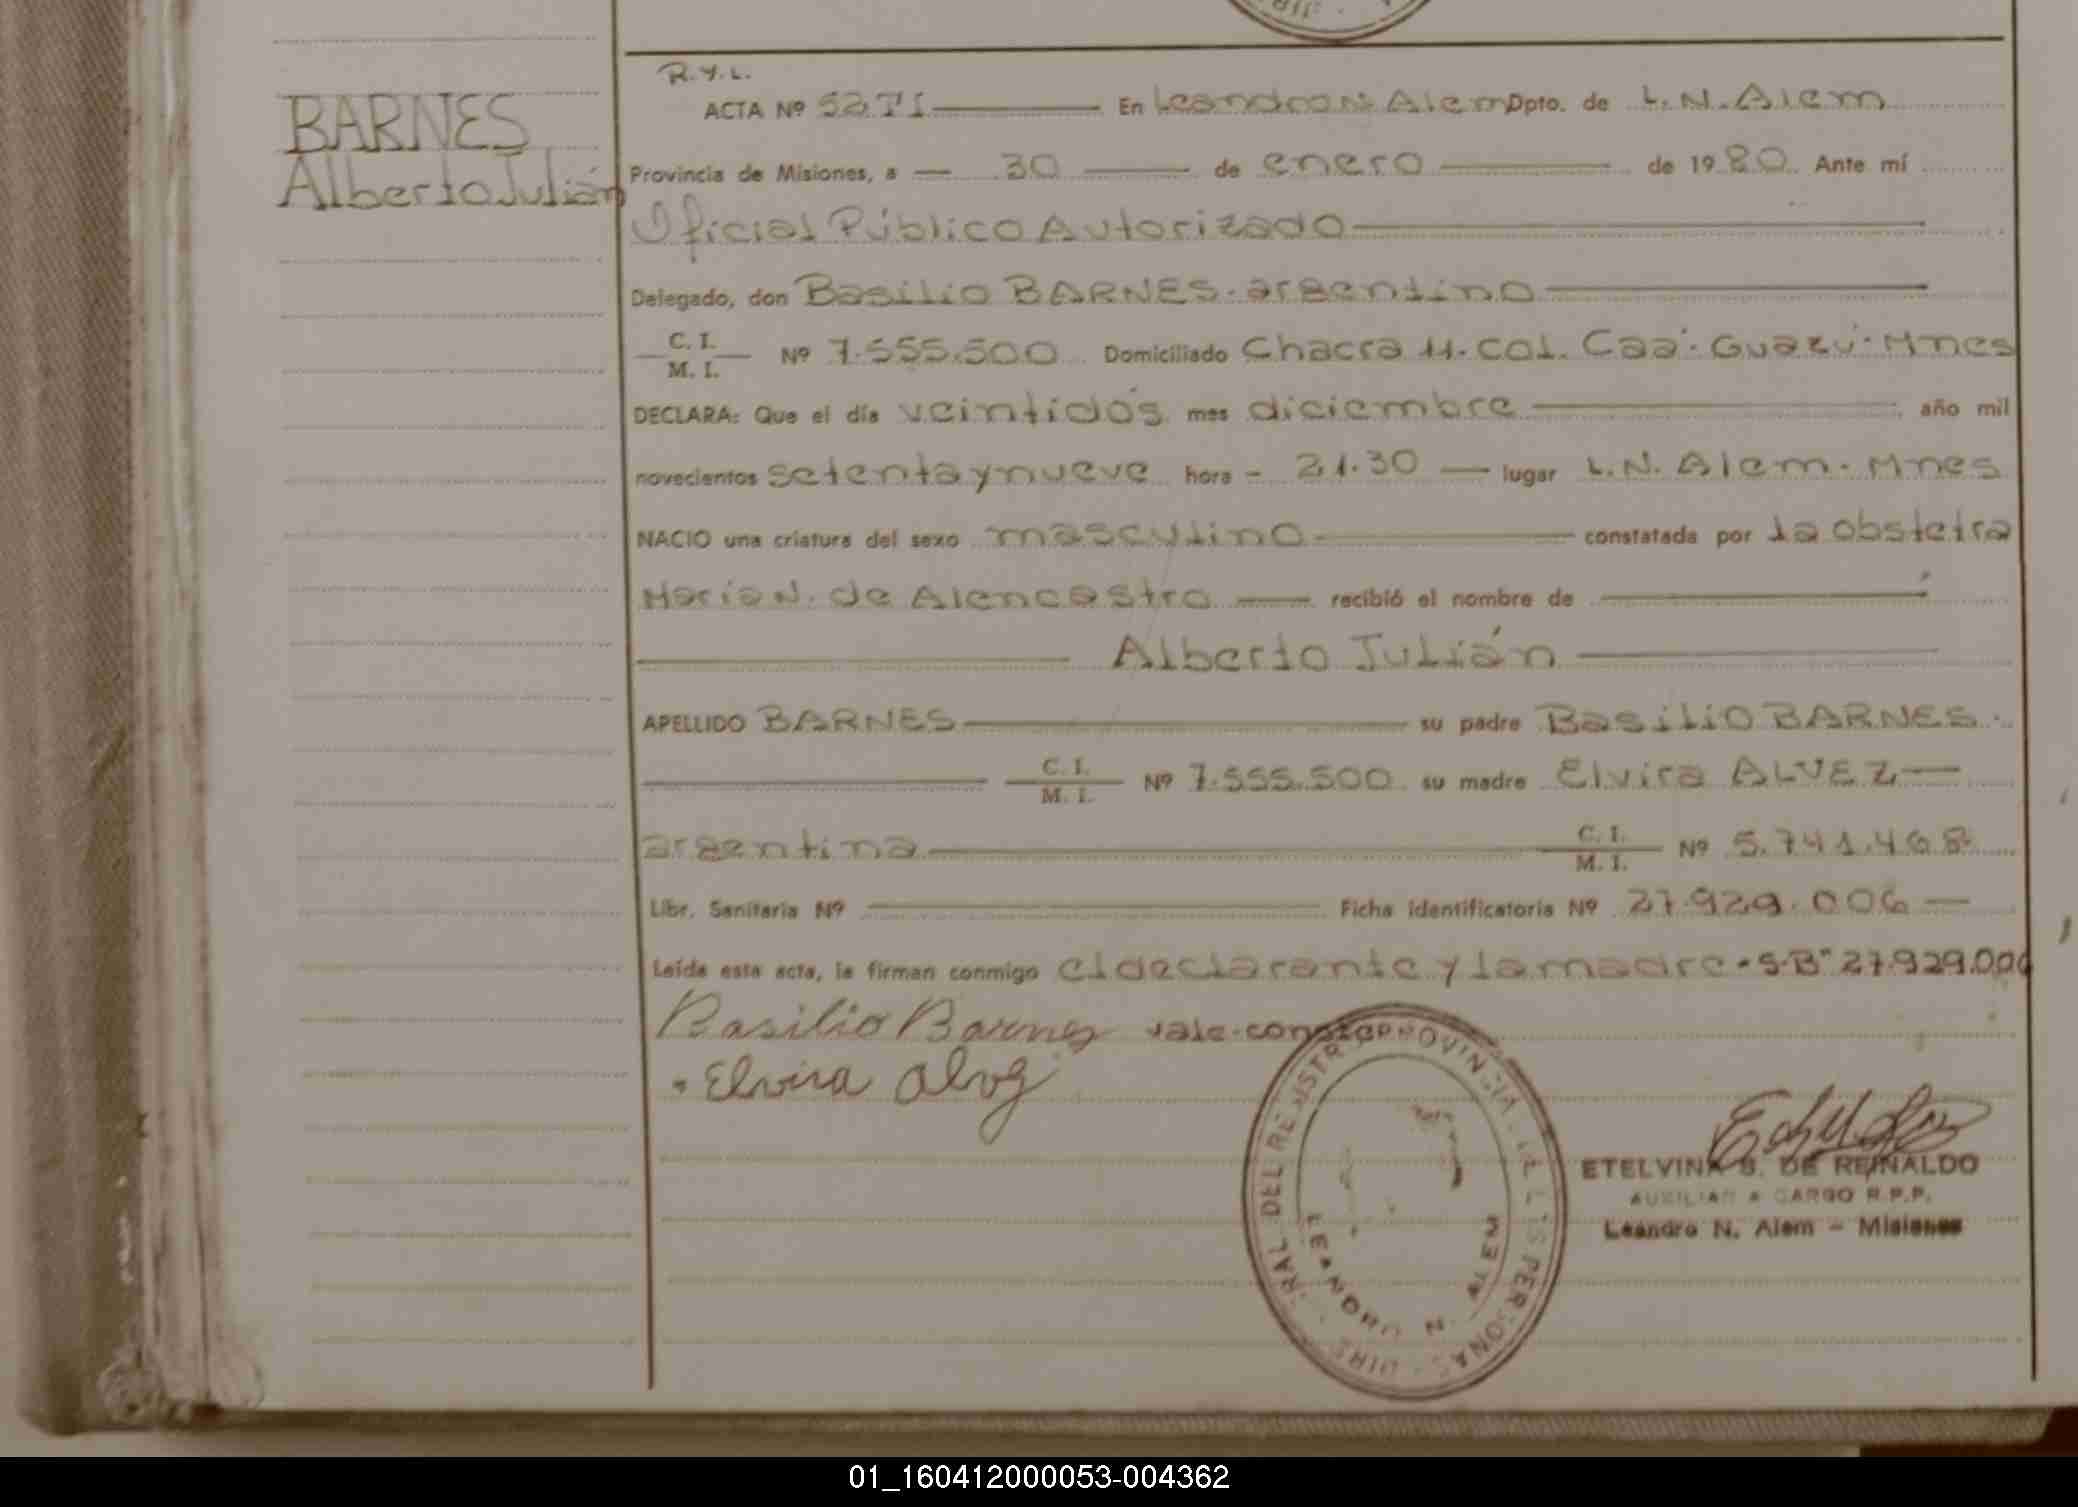 R.Y.L.
BARNES
Alberto Julián
ACTA Nº 52 TI En Leandro N. Alem Dpto. de L.N. Alem
Provincia de Misiones, a 30 de enero de 1980. Ante mí
Oficial Público Autorizado
Delegado, don Basilio BARNES. argentino
C. I.
M. I. Nº 7.555.500 Domiciliado Chacra 11. Col. Caá. Guazú. Mnes
DECLARA: Que el día veintidós mes diciembre año mil
novecientos setenta y nueve hora - 21.30 lugar L.N. Alem. Mnes
NACIO una criatura del sexo masculino constatada por la obstetra
Maria N. de Alencastro recibió el nombre de
Alberto Julián
APELLIDO BARNES su padre Basilio BARNES.
C. I.
M. I. Nº 7.555.500 su madre Elvira ALVEZ
argentina C. I.
M. I. Nº 5.741.468
Libr. Sanitaria Nº Ficha identificatoria Nº 27.929.006
Leída esta acta, la firman conmigo el declarante y la madre. S.B" 27.929.006
Basilio Barnes vale. conste
Elvira Alvez
DEL REGISTRO PROVINCIAL DE LAS PERSONAS
LEANDRO N. ALEM
ETELVINA S. DE REINALDO
AUXILIAR A CARGO R.P.P.
Leandro N. Alem - Misiones
01_160412000053-004362